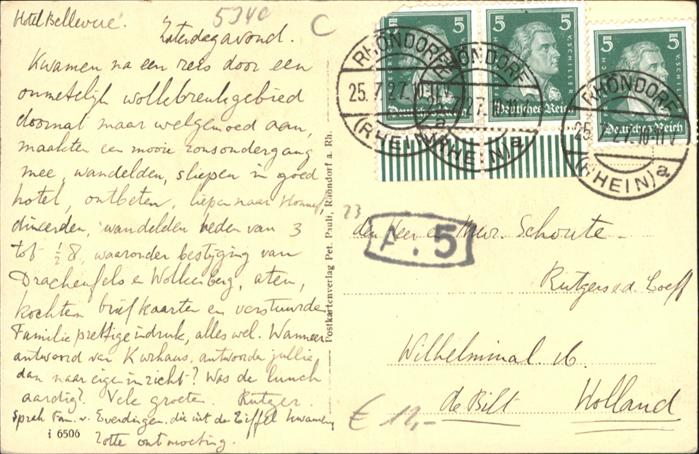 Hotel Bellevue.
5340
C
Zaterdagavond.
Kwamen na een reis door een
onmetelijk wolkbreukgebied
doornat maar welgemoed aan,
maakten een mooie zonsondergang
mee, wandelden, sliepen in goed
hotel, ontbeten, liepen naar Honnef,
dineerden, wandelden heden van 3
tot ½8, waaronder bestijging van
Drachenfels en Wolkenburg, aten,
kochten briefkaarten en verstuurden.
Familie prettige indruk, alles wel. Wanneer
antwoord van Kurhaus, antwoorden jullie,
dan naar eigen inzicht? Was de lunch
aardig? Vele groeten. Rutger.
Sprak Fam. v. Everdingen, die uit de Eiffel kwamen
Zotte ontmoeting.
i 6506
Postkartenverlag Pet. Pauli, Rhöndorf a. Rh.
5 5
V. SCHILLER
Deutsches Reich
5 5
V. SCHILLER
Deutsches Reich
5 5
V. SCHILLER
Deutsches Reich
RHÖNDORF
25.7.27.10-11V
(RHEIN) a
RHÖNDORF
(RHEIN) a
RHÖNDORF
(RHEIN) a
23
A.5
den Heer en Mevr. Schoute-
Rutgers v.d. Loeff
Wilhelminal. 16.
de Bilt Holland
€ 12,-